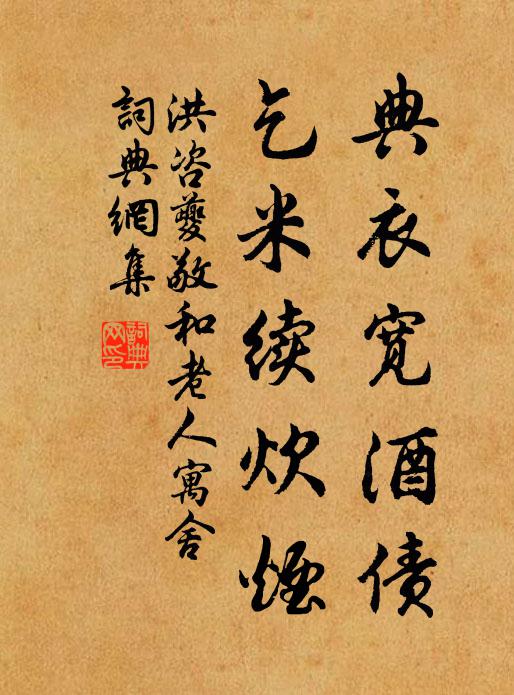 典衣寬酒債
乞米續炊煙
洪咨夔敬和老人寓舍
詞典網集
詞典
网印